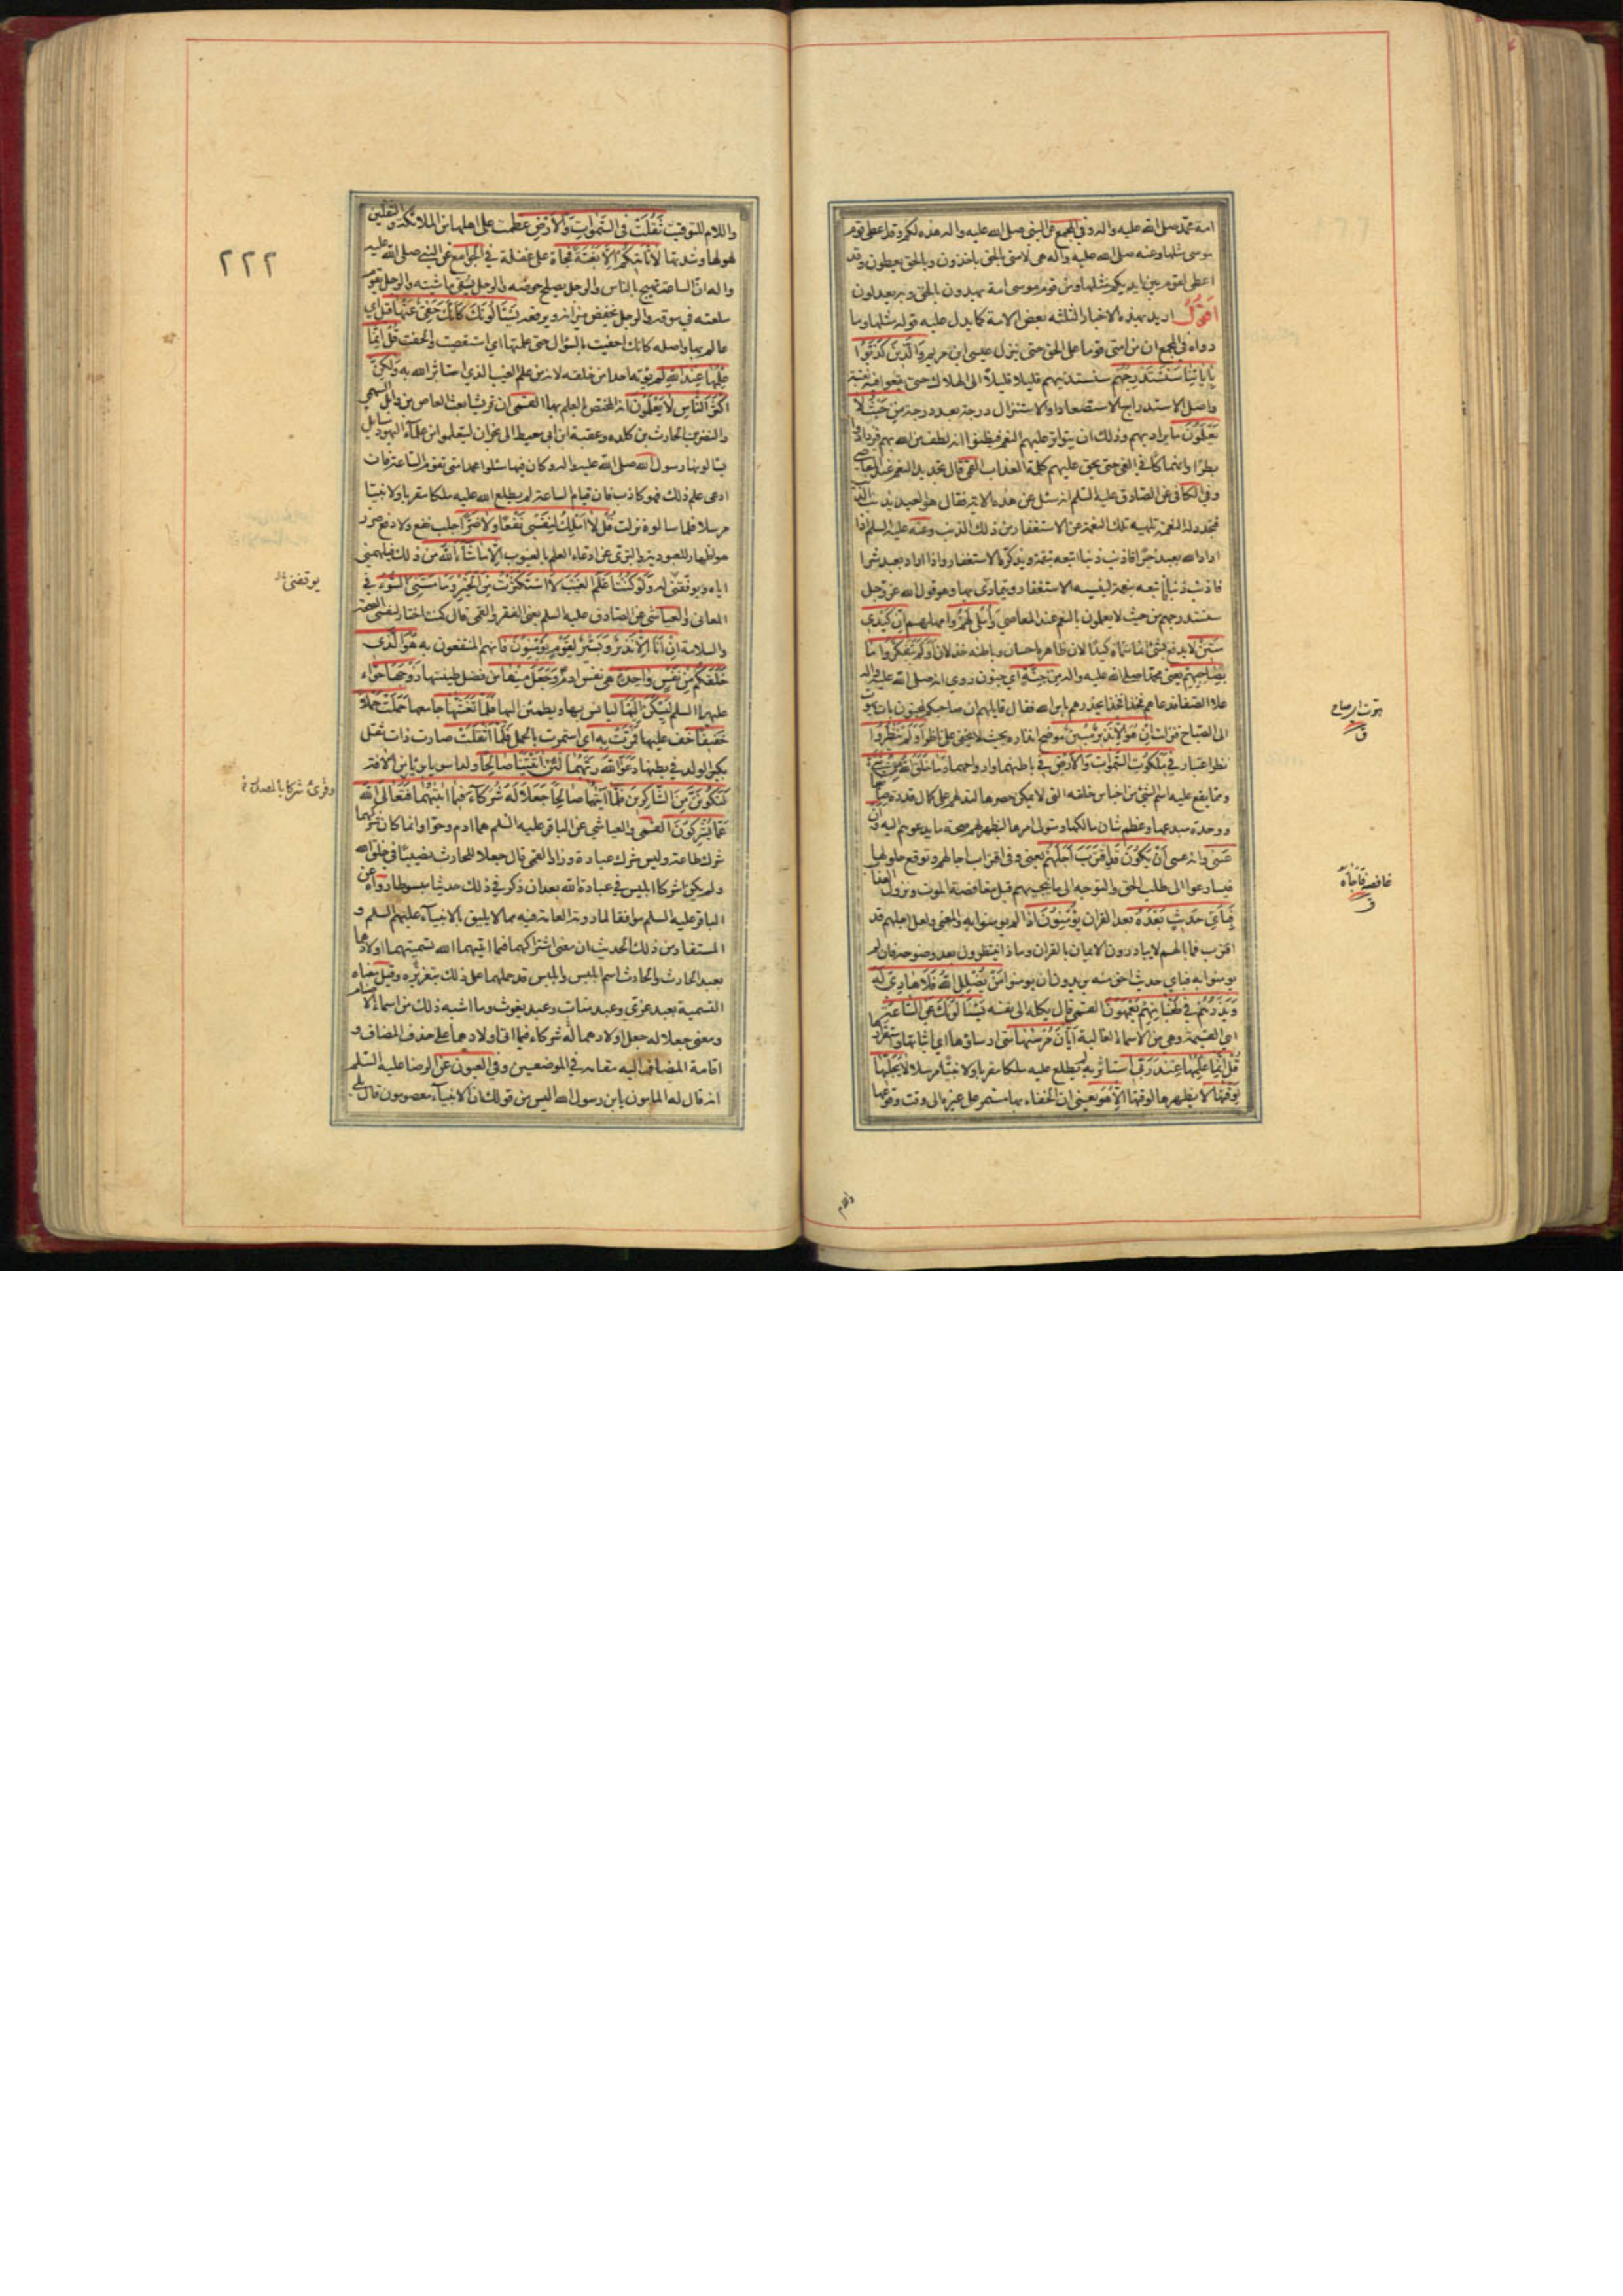 امة محمد صلى الله عليه واله وفي المجمع عن النبي صلى الله عليه واله هذه لكم وقد اعطي قوم
موسى مثلها وعنه صلى الله عليه وآله هي لامتي بالحق ياخذون وبالحق يعطون وقد
اعطي القوم بين ايديكم مثلها ومن قوم موسى امة يهدون بالحق وبه يعدلون
اقول اريد بهذه الاخبار الثلثة بعض الامة كما يدل عليه قوله مثلها وما
رواه في المجمع ان من امتي قوما على الحق حتى ينزل عيسى ابن مريم وَالَّذينَ كَذَّبُوا
بِاٰيٰاتِنٰا سَنَسْتَدْرِجُهُمْ سنستدنيهم قليلا قليلاً الى الهلاك حتى يقعوا فيه بغتة
واصل الاستدراج الاستصعاد او الاستنزال درجة بعد درجة مِنْ حَيْثُ لا
يَعْلَمُونَ ما يراد بهم وذلك ان يتواتر عليهم النعم فيظنوا انه لطف من الله بهم فيزدادوا
بطرًا وانهماكًا في الغي حتى يحق عليهم كلمة العذاب القمي قال تجديد النعم عند المعاصي
وفي الكافي عن الصادق عليه السلم انه سئل عن هذه الاية فقال هو العبد يذنب الذنب
فيجدد له النعمة تلهيه تلك النعمة عن الاستغفار من ذلك الذنب وعنه عليه السلم اذا
اراد الله بعبد خيرًا فاذنب ذنبا اتبعه بنقمة ويذكره الاستغفار واذا اراد بعبد شرا
فاذنب ذنبًا اتبعه بنعمة لينسيه الاستغفار ويتمادى بها وهو قول الله عز وجل
سنستدرجهم من حيث لا يعلمون بالنعم عند المعاصي وَأُمْلي لَهُمْ وامهلهم اِنَّ كَيْدي
مَتينٌ لا يدفع بشئ انما سماه كيدًا لان ظاهره احسان وباطنه خذلان اَوَلَمْ يَتَفَكَّرُوا مٰا
بِصٰاحِبِهِمْ يعني محمدًا صلى الله عليه واله مِنْ جِنَّةٍ اي جنون روي انه صلى الله عليه واله
علا الصفا فدعاهم فخذا فخذا يحذرهم باس الله فقال قايلهم ان صاحبكم لمجنون بات يهوت
الى الصباح فنزلت اِنْ هُوَ اِلّٰا نَذيرٌ مُبينٌ موضح انذاره بحيث لا يخفى على ناظر اَوَلَمْ يَنْظُرُوا
نظر اعتبار في مَلَكُوتِ السَّمٰوٰاتِ وَالْاَرْضِ في باطنهما وارواحهما وَمٰا خَلَقَ اللهُ مِنْ شَئٍ
ومما يقع عليه اسم الشئ من اجناس خلقه التي لا يمكن حصرها لتدلهم على كمال قدرة صانعها
ووحدة مبدعها وعظم شان مالكها ومتولي امرها ليظهر لهم صحة ما يدعوهم اليه وَاَنْ
عَسىٰ وانه عسى اَنْ يَكُونَ قَدِ اقْتَرَبَ اَجَلُهُمْ يعني وفي اقتراب اجالهم وتوقع حلولها
فيسارعوا الى طلب الحق والتوجه الى ما ينجيهم قبل مغافصة الموت ونزول العذاب
فَبِاَيِّ حَديثٍ بَعْدَهُ بعد القران يُؤْمِنُونَ اذا لم يومنوا به والمعنى ولعل اجلهم قد
اقترب فما بالهم لا يبادرون الايمان بالقران وماذا ينتظرون بعد وضوحه فان لم
يومنوا به فباي حديث احق منه يريدون ان يومنوا مَنْ يُضْلِلِ اللهُ فَلٰا هٰادِيَ لَهُ
وَيَذَرُهُمْ في طُغْيٰانِهِمْ يَعْمَهُونَ القمي قال يكله الى نفسه يَسْئَلُونَكَ عَنِ السّٰاعَةِ
اي القيمة وهي من الاسماء الغالبة اَيّٰانَ مُرْسٰيهٰا متى ارساؤها اي اثباتها واستقرارها
قُلْ اِنَّمٰا عِلْمُهٰا عِنْدَ رَبّي استاثر به لم يطلع عليه ملكا مقربا ولا نبيًّا مرسلا لٰا يُجَلّيهٰا
لِوَقْتِهٰا لا يظهرها لوقتها اِلّٰا هُوَ يعني ان الخفاء بها مستمر على غيره الى وقت وقوعها
هوت به صاح
ق
غافصه فاجأه
ق
واللام
٢٢٢
واللام للتوقيت ثَقُلَتْ فِي السَّمٰوٰاتِ وَالْاَرْضِ عظمت على اهلها من الملائكة والثقلين
لهولها وشدتها لٰا تَأْتيكُمْ اِلّٰا بَغْتَةً فجاة على غفلة في الجوامع عن النبي صلى الله عليه
واله ان الساعة تهيج بالناس والرجل يصلح حوضه والرجل يسقي ماشيته والرجل يقوم
سلعته في سوقه والرجل يخفض ميزانه ويرفعه يَسْئَلُونَكَ كَاَنَّكَ حَفِيٌّ عَنْهٰا قيل اي
عالم بها واصله كانك احفيت بالسؤال حتى علمتها اي استقصيت والحفت قُلْ اِنَّمٰا
عِلْمُهٰا عِنْدَ اللهِ لم يؤته احدا من خلقه لانه من علم الغيب الذي استاثر الله به وَلٰكِنَّ
اَكْثَرَ النّٰاسِ لٰا يَعْلَمُونَ انه المختص بالعلم بها القمي ان قريشا بعثت العاص بن وايل السهمي
والنضر بن الحارث بن كلدة وعقبة ابن ابي معيط الى نجران ليتعلموا من علمآء اليهود مسايل
يسالونها رسول الله صلى الله عليه واله وكان فيها سئلوا محمدا متى تقوم الساعة فان
ادعى علم ذلك فهو كاذب فان قيام الساعة لم يطلع الله عليه ملكا مقربا ولا نبيا
مرسلا فلما سالوه نزلت قُلْ لٰا اَمْلِكُ لِنَفْسي نَفْعًا وَلٰا ضَرًّا جلب نفع ولا دفع ضرر
هو اظهار للعبودية والتبري عن ادعاء العلم بالغيوب اِلّٰا مٰا شٰاءَ اللهُ من ذلك فيلهمني
اياه ويوفقني له وَلَوْ كُنْتُ اَعْلَمُ الغَيْبَ لَاسْتَكْثَرْتُ مِنَ الْخَيْرِ وَمٰا مَسَّنِيَ السُّوءُ في
المعاني والعياشي عن الصادق عليه السلم يعني الفقر والقمي قال كنت اختار لنفسي الصحة
والسلامة اِنْ اَنَا اِلّٰا نَذيرٌ وَبَشيرٌ لِقَوْمٍ يُؤْمِنُونَ فانهم المنتفعون به هُوَ الَّذي
خَلَقَكُمْ مِنْ نَفْسٍ وٰاحِدَةٍ هي نفس ادم وَجَعَلَ مِنْهٰا من فضل طينتها زَوْجَهٰا حوّاء
عليهما السلم لِيَسْكُنَ اِلَيْهٰا ليانس بها ويطمئن اليها فَلَمّٰا تَغَشّٰيهٰا جامعها حَمَلَتْ حَمْلًا
خَفيفًا خف عليها فَمَرَّتْ بِه اي استمرت بالحمل فَلَمّٰا اَثْقَلَتْ صارت ذات ثقل
بكبر الولد في بطنها دَعَوَا اللهَ رَبَّهُمٰا لَئِنْ اٰتَيْتَنٰا صٰالِحًا ولدا سويا بريا من الافة
لَنَكُونَنَّ مِنَ الشّٰاكِرينَ فَلَمّٰا اٰتٰيهُمٰا صٰالِحًا جَعَلٰا لَهُ شُرَكٰاءَ فيمٰا اٰتٰيهُمٰا فَتَعٰالَى اللهُ
عَمّٰا يُشْرِكُونَ القمي والعياشي عن الباقر عليه السلم هما ادم وحوا وانما كان شركهما
شرك طاعة وليس شرك عبادة وزاد القمي قال جعلا للحارث نصيبًا في خلق الله
ولم يكن اشركا ابليس في عبادة الله بعد ان ذكر في ذلك حديثا مبسوطا رواه عن
الباقر عليه السلم موافقا لما روته العامة فيه مما لا يليق بالانبيآء عليهم السلم و
المستفاد من ذلك الحديث ان معنى اشتراكهما فيما اتيهما الله تسميتهما اولادهما
بعبد الحارث والحارث اسم ابليس وابليس قد حملهما على ذلك بتغريره وقيل معناه
التسمية بعبد عزى وعبد منات وعبد يغوث وما اشبه ذلك من اسماء الاصنام
ومعنى جعلا له جعل اولادهما له شركاء فيما اتى اولادهما على حذف المضاف و
اقامة المضاف اليه مقامه في الموضعين وفي العيون عن الرضا عليه السلم
انه قال له المامون يابن رسول الله اليس من قولك ان الانبيآء معصومون قال بلى
يوقفني خ
وقرئ شركا بالمصدر